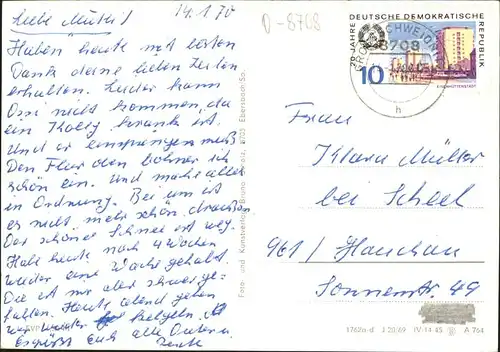 Liebe Mutter! 14.1.70
Haben heute mit besten
Dank deine lieben Zeilen
erhalten. Leider kann
Ossi nicht kommen, da
ein Kolleg krank ist
Und er einspringen muß
Den Flur den bohner ich
schön ein. Und mache alles
in Ordnung. Bei uns ist
es nicht mehr schön draußen
Der schöne Schnee ist weg.
Habe heute nach 4 Wochen
wieder eine Wache gehabt.
Die ist mir aber schwer ge-
fallen. Heute abend gehen
wir wieder kegeln.
Es grüßt Euch alle
D-8708
20 JAHRE DEUTSCHE DEMOKRATISCHE REPUBLIK
10
EISENHÜTTENSTADT
GROSSSCHWEIDNITZ
8708
h
Frau
Klara Müller
bei Scheel
961/ Glauchau
Sonnenstr. 49
Foto- und Kunstverlag Bruno Scholz, 8705 Ebersbach/Sa.
EVP
1762n-d J 20/69 IV-14-45 A 764